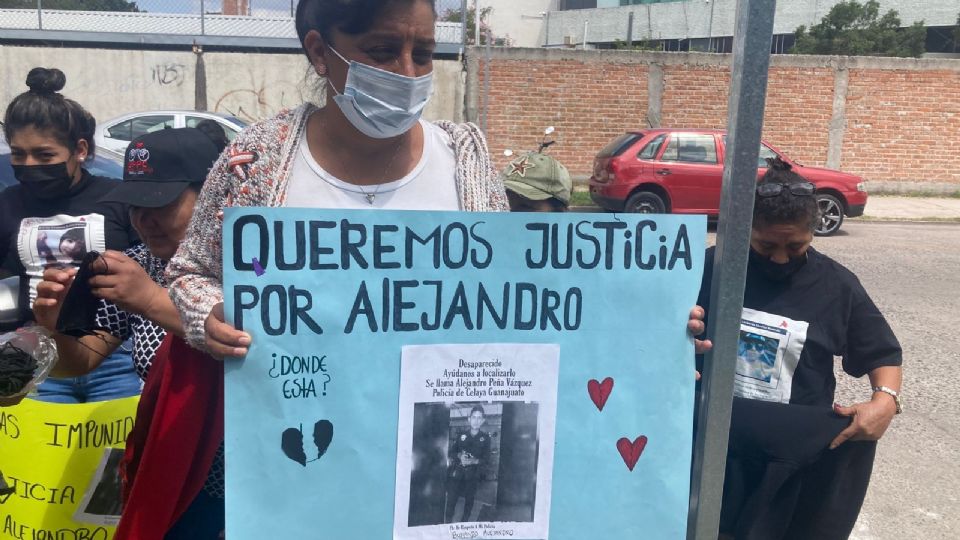 QUEREMOS JUSTICIA
POR ALEJANDRO
¿DONDE
ESTA?
Desaparecido
Ayúdanos a localizarlo
Se llama Alejandro Peña Vázquez
Policía de Celaya Guanajuato
ALEJANDRO
AS IMPUNID
ICIA
ALEJANDRO